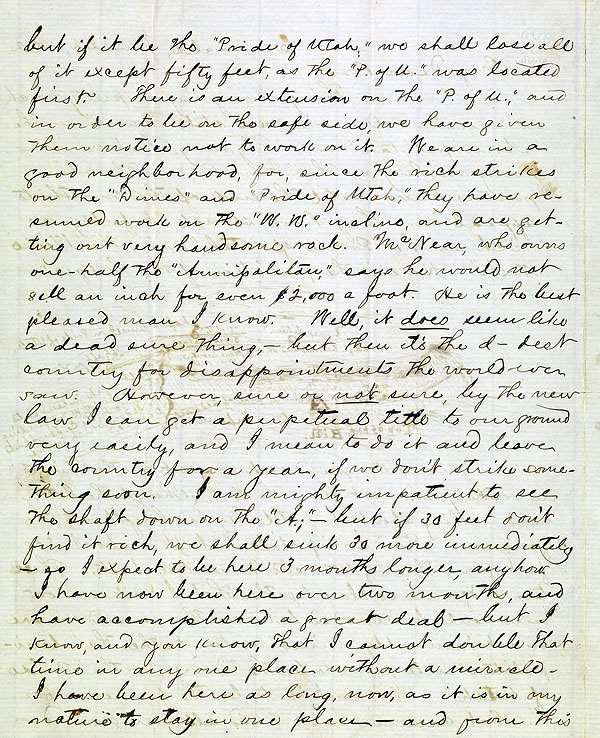 but if it be the "Pride of Utah," we shall lose all
of it except fifty feet, as the "P. of U." was located
first. There is an extension on the "P. of U.," and
in order to be on the safe side, we have given
them notice not to work on it. We are in a
good neighborhood, for, since the rich strikes
on the "Dimes" and "Pride of Utah," they have re-
sumed work on the "W. W." incline, and are get-
ting out very handsome rock. McNear, who owns
one-half the "Annipolitan," says he would not
sell an inch for even $2,000 a foot. He is the best
pleased man I know. Well, it does seem like
a dead sure thing, — but then it's the d—dest
country for disappointments the world ever
saw. However, sure or not sure, by the new
law I can get a perpetual title to our ground
very easily, and I mean to do it and leave
the country for a year, if we don't strike some-
thing soon. I am mighty impatient to see
the shaft down on the "A;" — but if 30 feet don't
find it rich, we shall sink 30 more immediately
— so I expect to be here 3 months longer, anyhow.
I have now been here over two months, and
have accomplished a great deal — but I
know, and you know, that I cannot double that
time in any one place without a miracle.
I have been here as long, now, as it is in my
nature to stay in one place — and from this